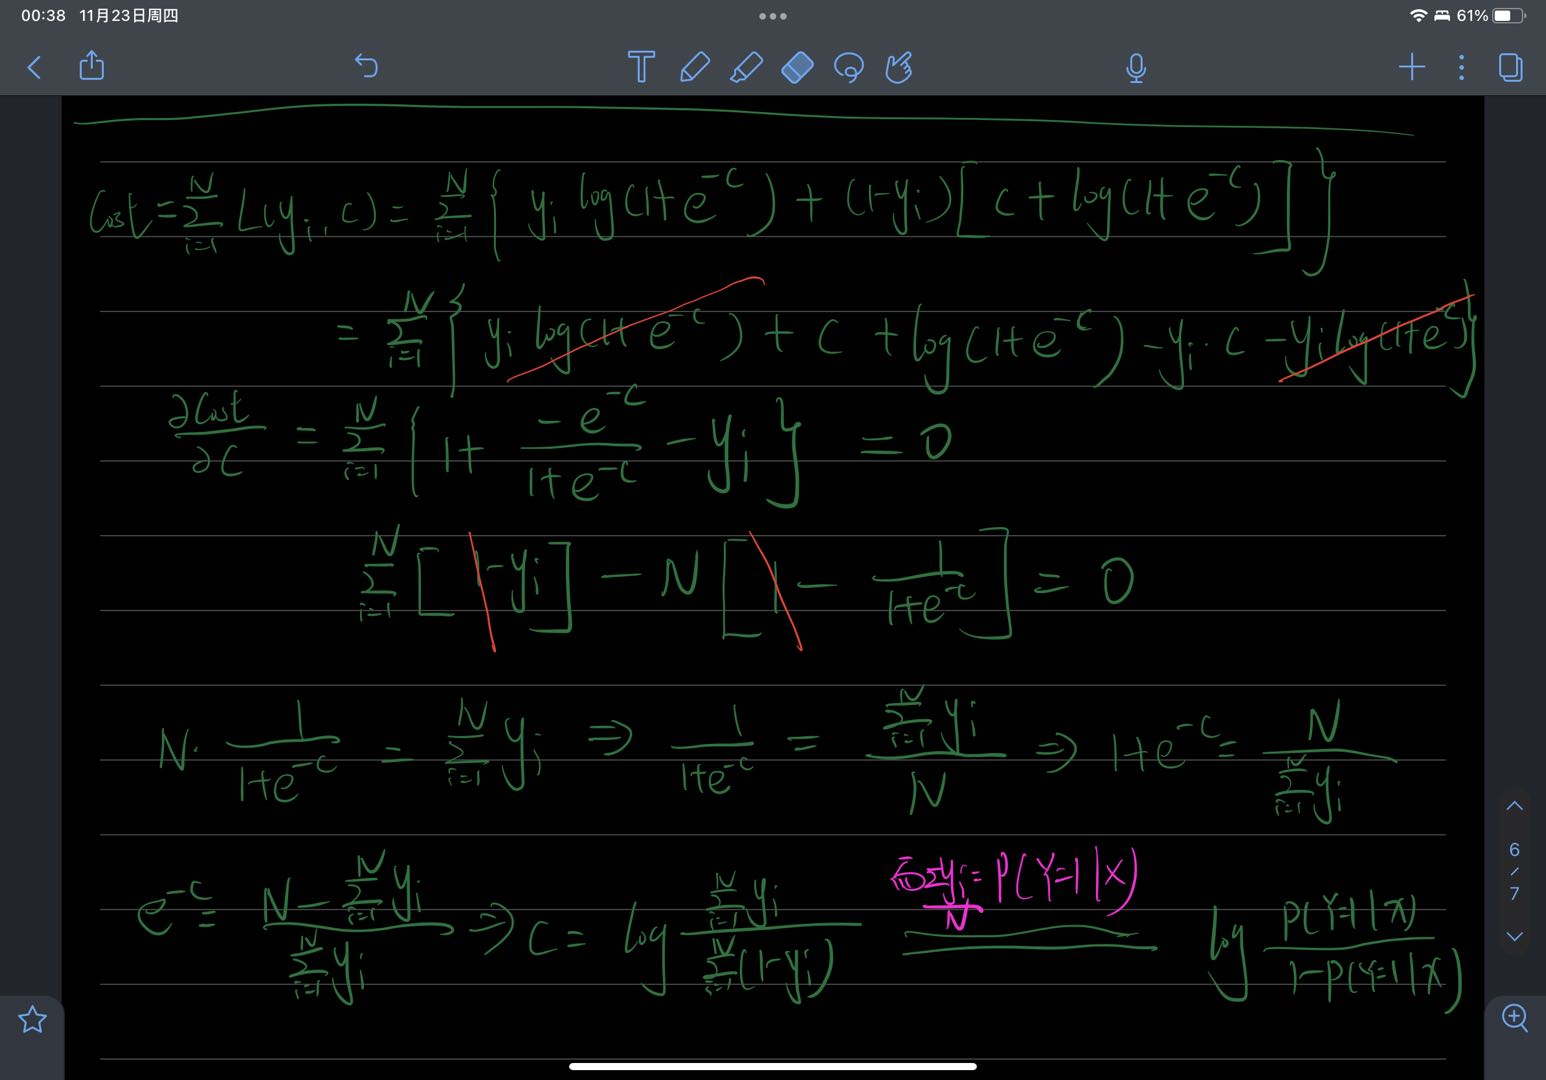 00:38 11月23日周四 61%
Cost = \sum_{i=1}^{N} L(y_i, c) = \sum_{i=1}^{N} { y_i log(1+e^{-c}) + (1-y_i)[c + log(1+e^{-c})] }
= \sum_{i=1}^{N} { y_i log(1+e^{-c}) + c + log(1+e^{-c}) - y_i · c - y_i log(1+e^{-c}) }
\frac{∂Cost}{∂c} = \sum_{i=1}^{N} { 1 + \frac{-e^{-c}}{1+e^{-c}} - y_i } = 0
\sum_{i=1}^{N} [1 - y_i] - N [1 - \frac{1}{1+e^{-c}}] = 0
N · \frac{1}{1+e^{-c}} = \sum_{i=1}^{N} y_i ⇒ \frac{1}{1+e^{-c}} = \frac{\sum_{i=1}^{N} y_i}{N} ⇒ 1+e^{-c} = \frac{N}{\sum_{i=1}^{N} y_i}
而 \frac{Σy_i}{N} = P(Y=1|X)
e^{-c} = \frac{N - \sum_{i=1}^{N} y_i}{\sum_{i=1}^{N} y_i} ⇒ c = log \frac{\sum_{i=1}^{N} y_i}{\sum_{i=1}^{N} (1-y_i)} = log \frac{P(Y=1|x)}{1-P(Y=1|X)}
6/7